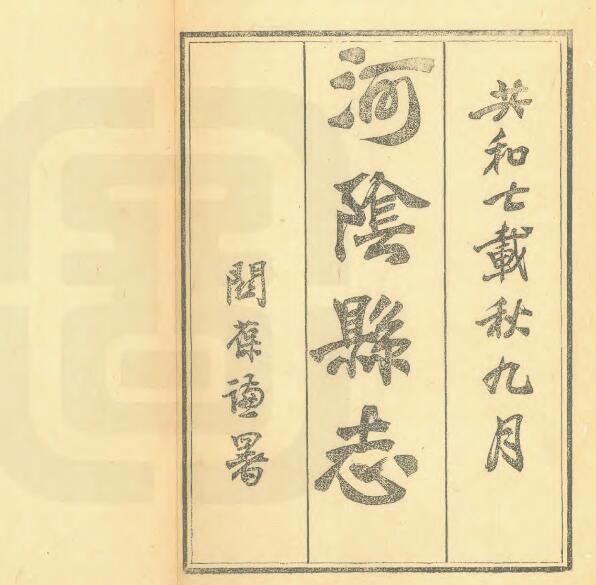 共和七載秋九月
河陰縣志
葆謙署